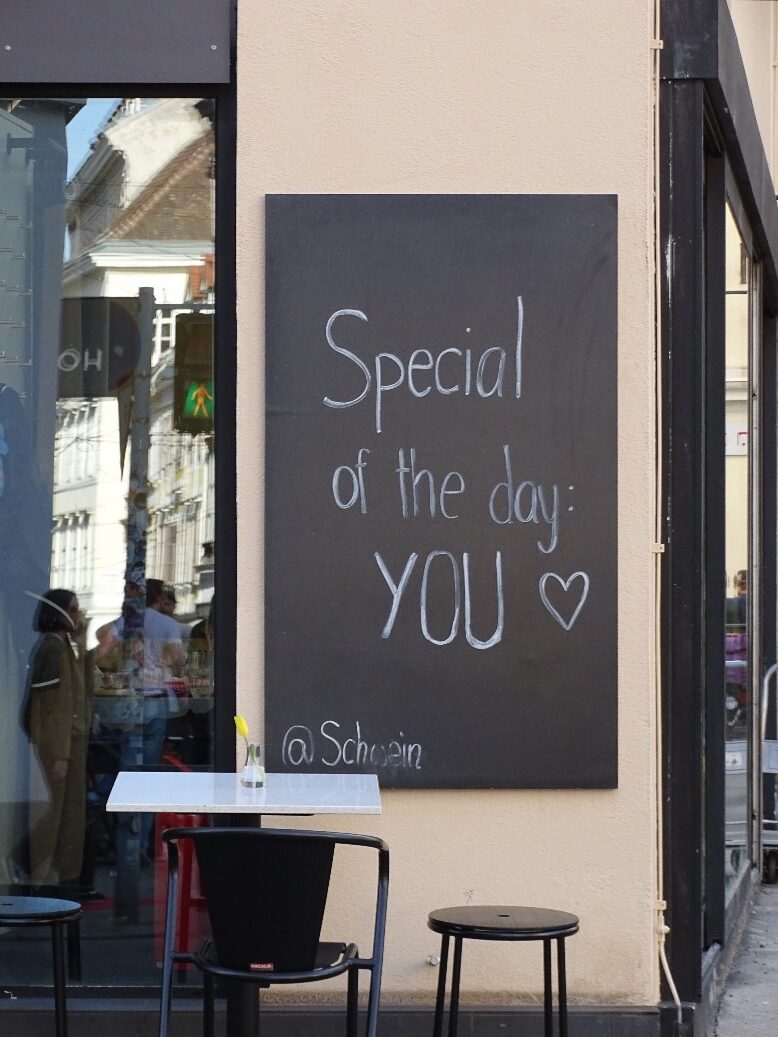 Special
of the day:
YOU ♡
@Schwein
HO